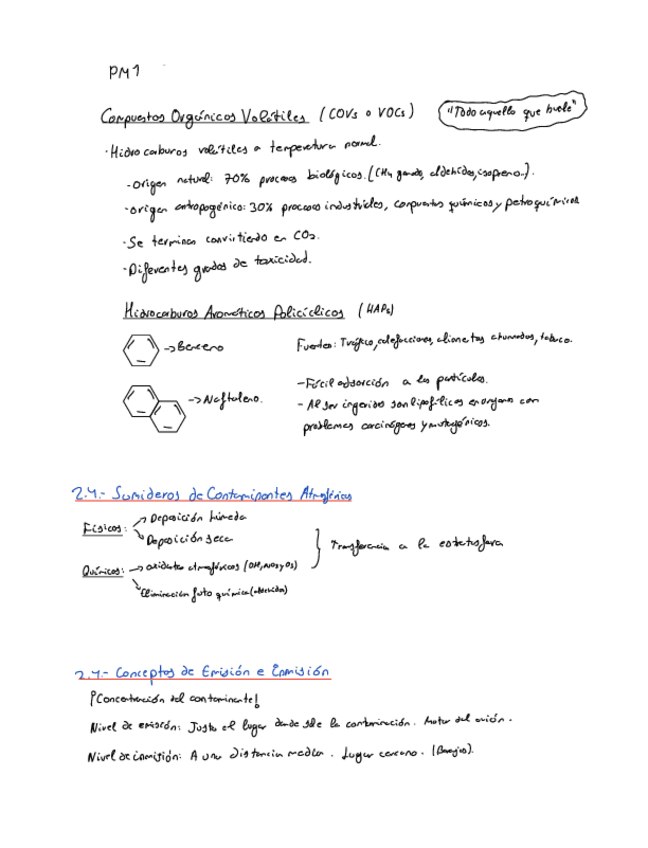 PM1
Compuestos Orgánicos Volátiles (COVs o VOCs) "Todo aquello que huele"
· Hidrocarburos volátiles a temperatura normal.
- origen natural: 70% procesos biológicos. (CH4 ganado, aldehídos, isopreno..).
· origen antropogénico: 30% procesos industriales, compuestos químicos y petroquímicos
· Se terminan convirtiendo en CO2.
· Diferentes grados de toxicidad.
Hidrocarburos Aromáticos Policíclicos (HAPs)
→ Benceno
Fuentes: Tráfico, calefacciones, alimentos ahumados, tabaco.
→ Naftaleno.
- Fácil adsorción a las partículas.
- Al ser ingeridos son lipofílicos en organo con
problemas carcinógenos y mutagénicos.
2.4.- Sumideros de Contaminantes Atmosféricos
Físicos: → Deposición húmeda
→ Deposición seca
Químicos: → oxidantes atmosféricos (OH, NO3 y O3)
→ Eliminación fotoquímica (aldehídos)
} Transferencia a la estratosfera
2.4.- Conceptos de Emisión e Inmisión
¡Concentración del contaminante!
Nivel de emisión: Justo el lugar donde sale la contaminación. Motor del avión.
Nivel de inmisión: A una distancia media. Lugar cercano. (Barajas).